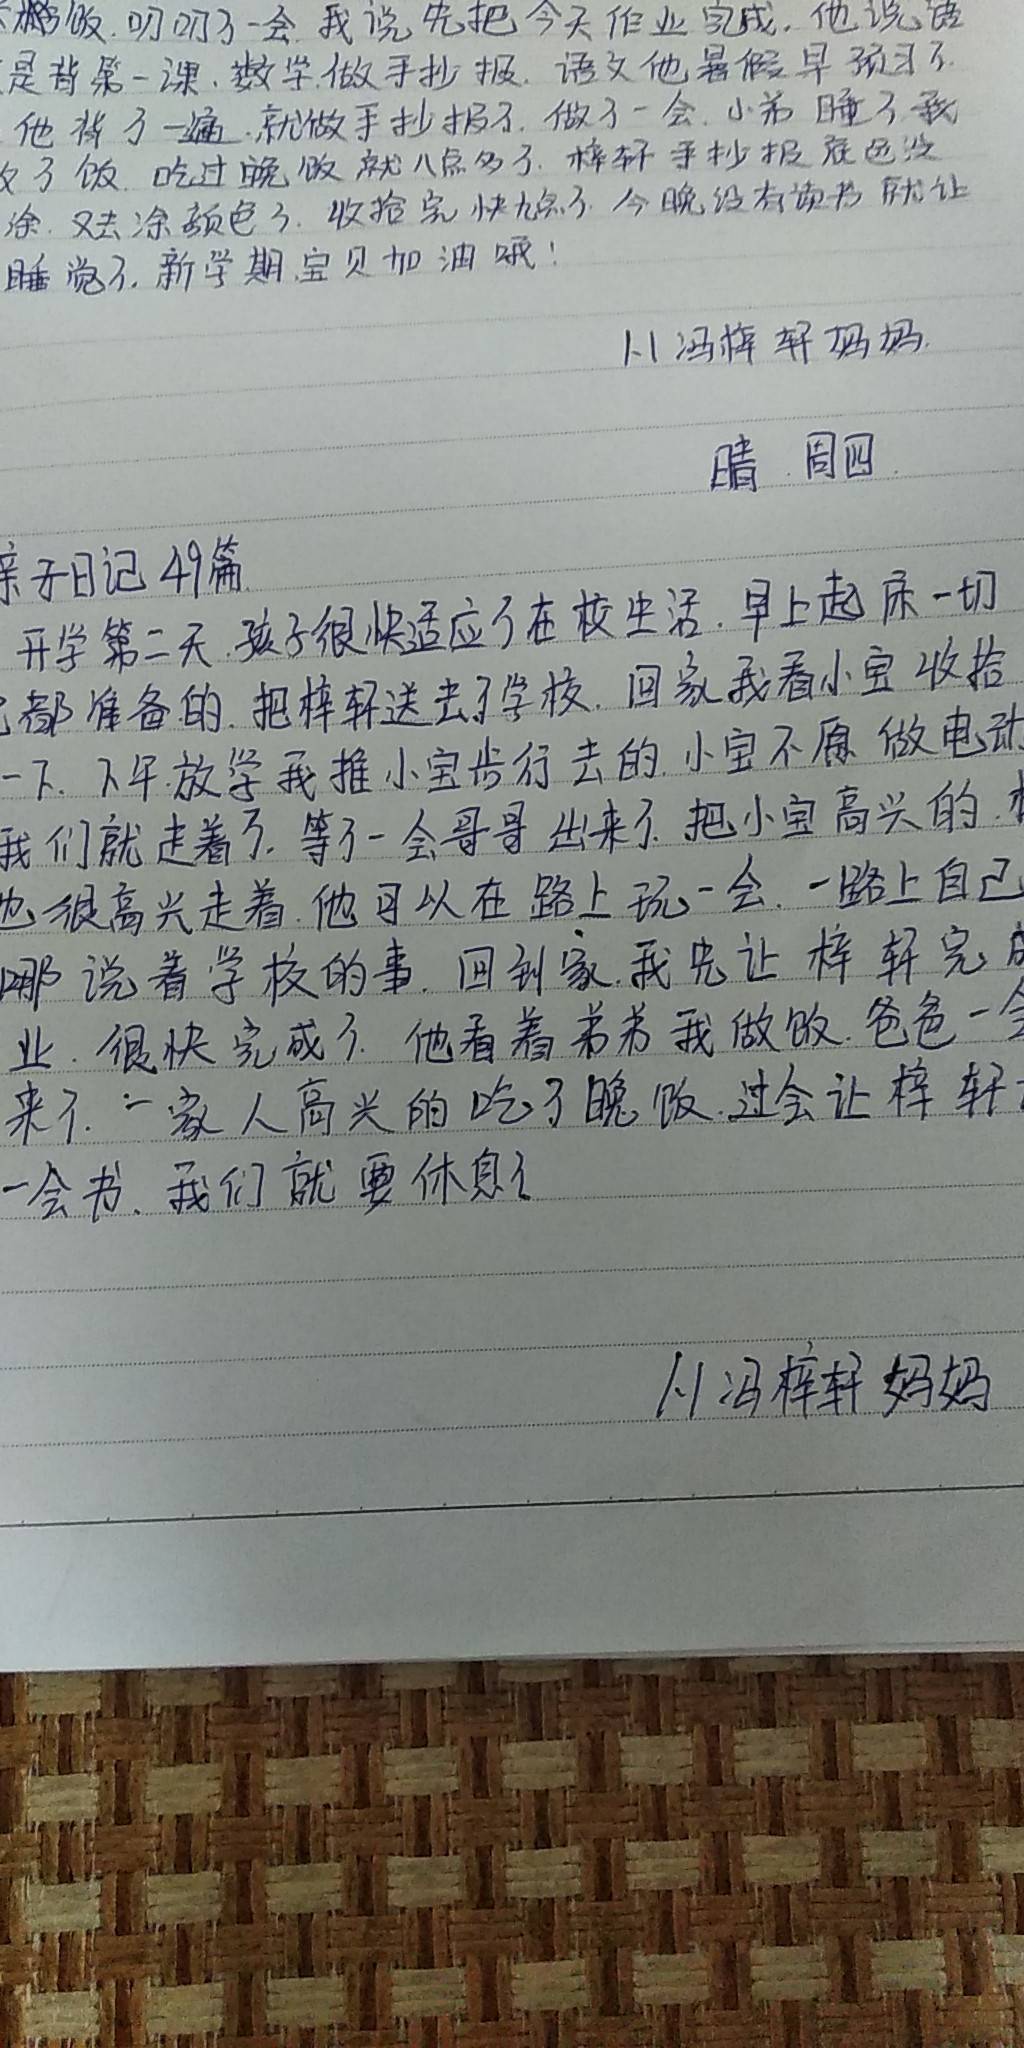 饭.叨叨了一会.我说先把今天作业完成.他说语
是背第一课.数学.做手抄报.语文他暑假早预习了.
他背了一遍.就做手抄报了.做了一会.小弟睡了.我
了饭.吃过晚饭就八点多了.梓轩手抄报底色没
涂.又去涂颜色了.收拾完快九点了.今晚没有读书就让
睡觉了.新学期.宝贝加油哦!
1.1冯梓轩妈妈.
晴.周四.
亲子日记49篇.
开学第二天.孩子很快适应了在校生活.早上起床一切
都准备的.把梓轩送去了学校.回家我看小宝收拾
一下.下午.放学我推小宝步行去的.小宝不愿做电动
我们就走着了.等了一会哥哥出来了.把小宝高兴的.
也很高兴走着.他可以在路上玩一会.一路上自己
说着学校的事.回到家.我先让梓轩完成
业.很快完成了.他看着弟弟我做饭.爸爸一会
来了.一家人高兴的吃了晚饭.过会让梓轩
一会书.我们就要休息了
1.1冯梓轩妈妈